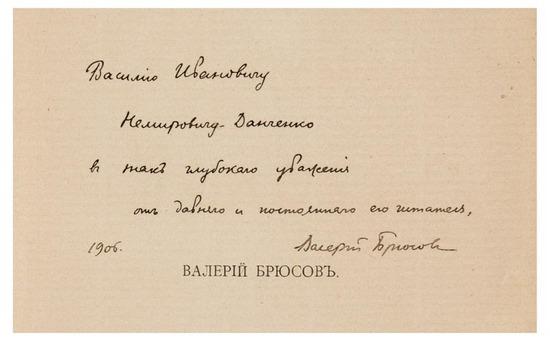 Василію Ивановичу
Немировичу-Данченко
в знакъ глубокаго уваженія
отъ давняго и постояннаго его читателя,
1906. Валерій Брюсов
ВАЛЕРІЙ БРЮСОВЪ.